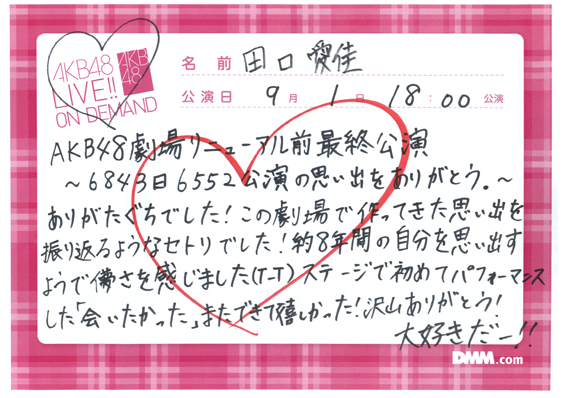 AKB48
LIVE!!
ON DEMAND
AKB
48
名前 田口愛佳
公演日 9月1日 18:00公演
AKB48劇場リニューアル前最終公演
～6843日6552公演の思い出をありがとう。～
ありがたぐちでした!この劇場で作ってきた思い出を
振り返るようなセトリでした!約8年間の自分を思い出す
ようで儚さを感じました(T-T)ステージで初めてパフォーマンス
した「会いたかった」またできて嬉しかった!沢山ありがとう!
大好きだー!!
DMM.com